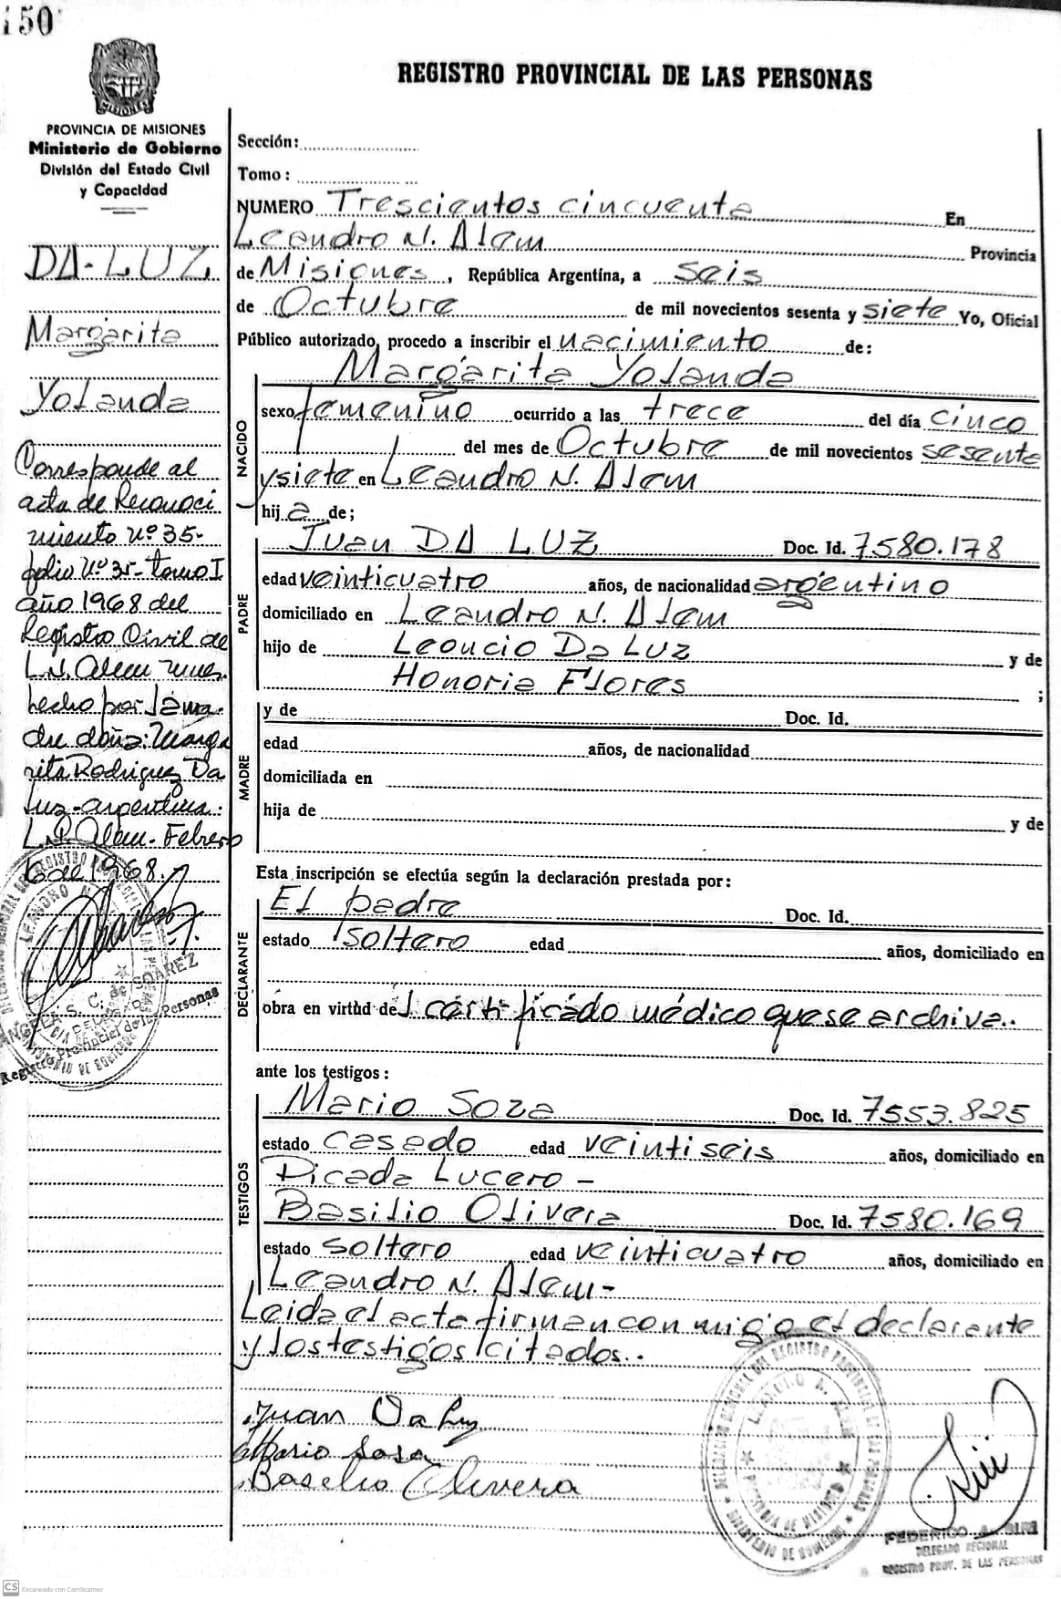 150
REGISTRO PROVINCIAL DE LAS PERSONAS
MISIONES
PROVINCIA DE MISIONES
Ministerio de Gobierno
División del Estado Civil
y Capacidad
DA-LUZ
Margarita
Yolanda
Corresponde al
acta de Reconoci
miento nº 35-
folio nº 35- tomo I
año 1968 del
Registro Civil de
L.N. Alem
hecho por la ma-
dre doña: Marga
rita Rodriguez Da
Luz-argentina:
L.N. Alem- Febrero
6 de 1968.
ANGELA S. C. de SUAREZ
DELEGADO
Registro Provincial de las Personas
Sección:
Tomo:
NUMERO Trescientos cincuenta En
Leandro N. Alem Provincia
de Misiones, República Argentina, a seis
de Octubre de mil novecientos sesenta y siete Yo, Oficial
Público autorizado, procedo a inscribir el nacimiento de:
NACIDO
Margarita Yolanda
sexo femenino ocurrido a las trece del día cinco
del mes de Octubre de mil novecientos sesenta
y siete en Leandro N. Alem
hija de;
PADRE
Juan DA LUZ Doc. Id. 7580.178
edad veinticuatro años, de nacionalidad argentino
domiciliado en Leandro N. Alem
hijo de Leoncio Da Luz y de
Honoria Flores ;
MADRE
y de Doc. Id.
edad años, de nacionalidad
domiciliada en
hija de y de
Esta inscripción se efectúa según la declaración prestada por:
DECLARANTE
El padre Doc. Id.
estado soltero edad años, domiciliado en
obra en virtud del certificado médico que se archiva..
ante los testigos:
TESTIGOS
Mario Soza Doc. Id. 7553.825
estado casado edad veintiseis años, domiciliado en
Picada Lucero -
Basilio Olivera Doc. Id. 7580.169
estado soltero edad veinticuatro años, domiciliado en
Leandro N. Alem-
Leida el acta firman conmigo el declarante
y los testigos citados..
Juan Da Luz
Mario Sosa
Baselio Olivera
LEANDRO N. ALEM
PROVINCIA DE MISIONES
MINISTERIO DE GOBIERNO
FEDERICO A.
DELEGADO REGIONAL
REGISTRO PROV. DE LAS PERSONAS
CS Escaneado con CamScanner